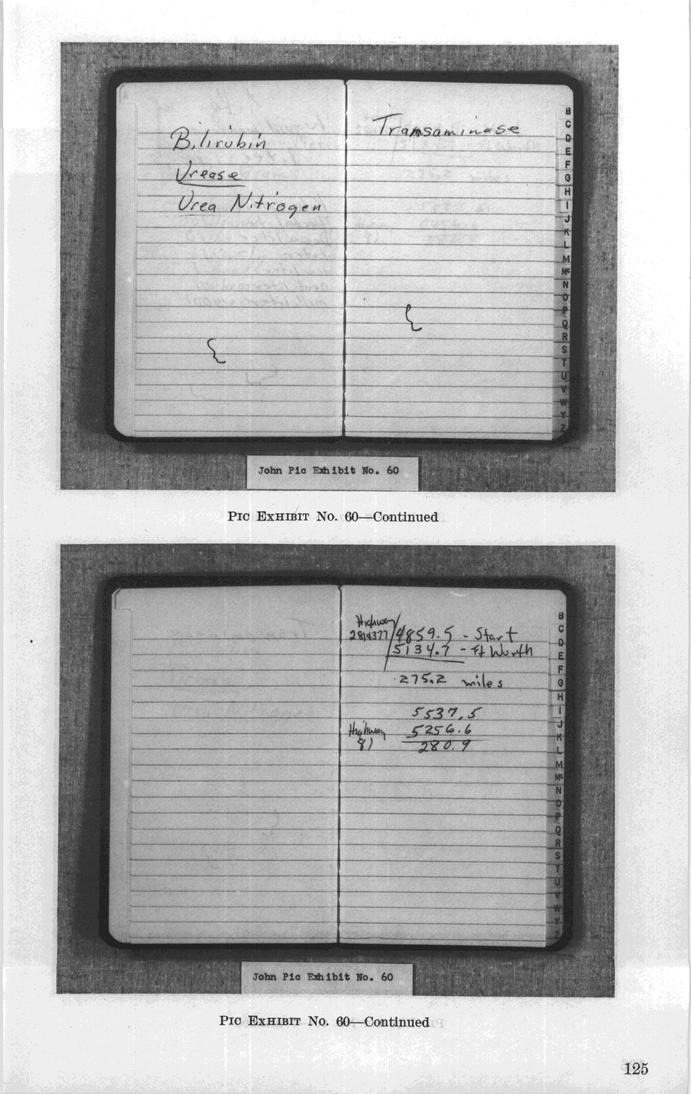 Bilirubin
Urease
Urea Nitrogen
Transaminase
B
C
D
E
F
G
H
I
J
K
L
M
Mc
N
O
P
Q
R
S
T
U
V
W
Y
Z
John Pic Exhibit No. 60
PIC EXHIBIT No. 60—Continued
Highway
281&377
4859.5 - Start
5134.7 - Ft Worth
275.2 miles
5537.5
Highway
81
5256.6
280.9
B
C
D
E
F
G
H
I
J
K
L
M
Mc
N
O
P
Q
R
S
T
U
V
W
Y
Z
John Pic Exhibit No. 60
PIC EXHIBIT No. 60—Continued
125